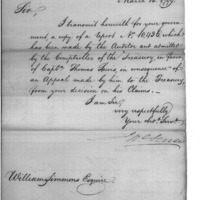 March 1799.
Sir,
I transmit herewith for your govern-
ment a copy of a Report No. 10.436, which
has been made by the Auditor and admitted
by the Comptroller of the Treasury, in favor
of Capt. Thomas Lewis, in consequence of an
Appeal made by him to the Treasury,
from your decision on his Claims.
I am Sir,
very respectfully
Your Obt. Servt.
William Simmons Esquire